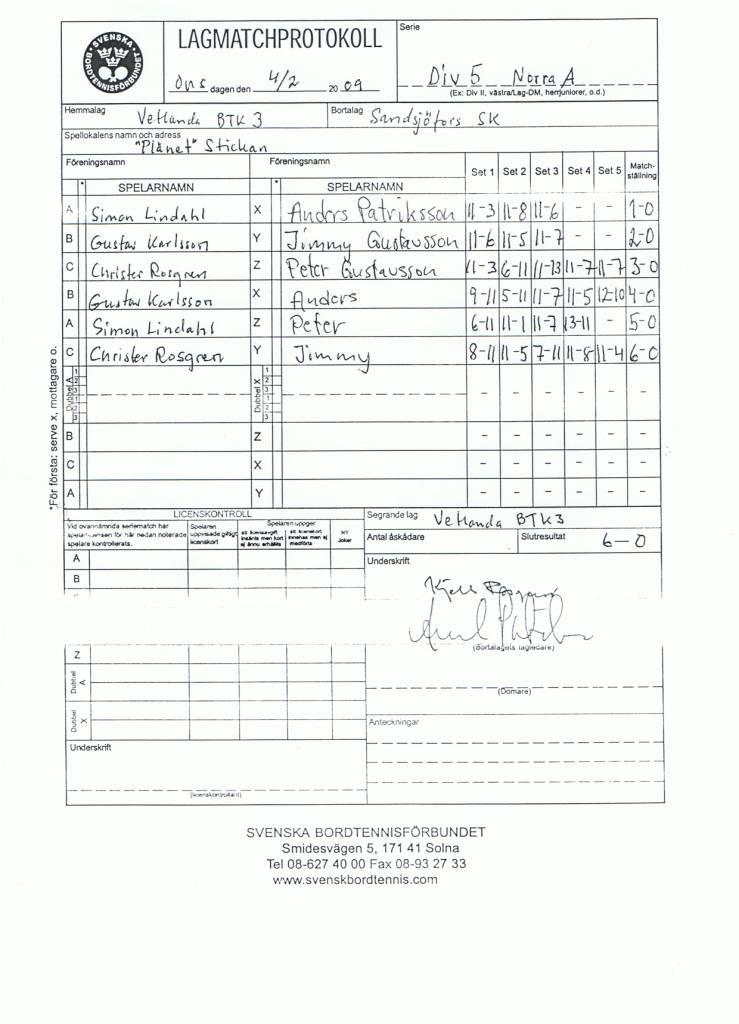 SVENSKA BORDTENNISFÖRBUNDET
LAGMATCHPROTOKOLL
Ons dagen den 4/2 2009
Serie
Div 5 Norra A
(Ex: Div II, västra/Lag-DM, herrjuniorer, o.d.)
Hemmalag Vetlanda BTK 3 Bortalag Sandsjöfors SK
Spellokalens namn och adress
"Plånet" Stickan
Föreningsnamn Föreningsnamn Set 1 Set 2 Set 3 Set 4 Set 5 Match-ställning
* SPELARNAMN * SPELARNAMN
A Simon Lindahl X Anders Patriksson 11-3 11-8 11-6 - - 1-0
B Gustav Karlsson Y Jimmy Gustavsson 11-6 11-5 11-7 - - 2-0
C Christer Rosgren Z Peter Gustavsson 11-3 6-11 11-13 11-7 11-7 3-0
B Gustav Karlsson X Anders 9-11 5-11 11-7 11-5 12-10 4-0
A Simon Lindahl Z Peter 6-11 11-1 11-7 13-11 - 5-0
C Christer Rosgren Y Jimmy 8-11 11-5 7-11 11-8 11-4 6-0
Dubbel A 1 2 3 1 2 3 Dubbel X 1 2 3 1 2 3 - - - - - -
B Z - - - - - -
C X - - - - - -
A Y - - - - - -
*För första: serve x, mottagare o.
LICENSKONTROLL
Vid ovannämnda seriematch har
spelarlicensen för här nedan noterade
spelare kontrollerats.
Spelaren
uppvisade giltigt
licenskort
Spelaren uppger
att licensavgift
insänts men kort
ej ännu erhållits
att licenskort
innehas men ej
medförts
NY
Joker
Segrande lag Vetlanda BTK3
Antal åskådare Slutresultat 6-0
A
B
Underskrift
Kjell Rosgren
(Bortalagets lagledare)
Z
Dubbel A
Dubbel X
(Domare)
Anteckningar
Underskrift
(licenskontrollant)
SVENSKA BORDTENNISFÖRBUNDET
Smidesvägen 5, 171 41 Solna
Tel 08-627 40 00 Fax 08-93 27 33
www.svenskbordtennis.com